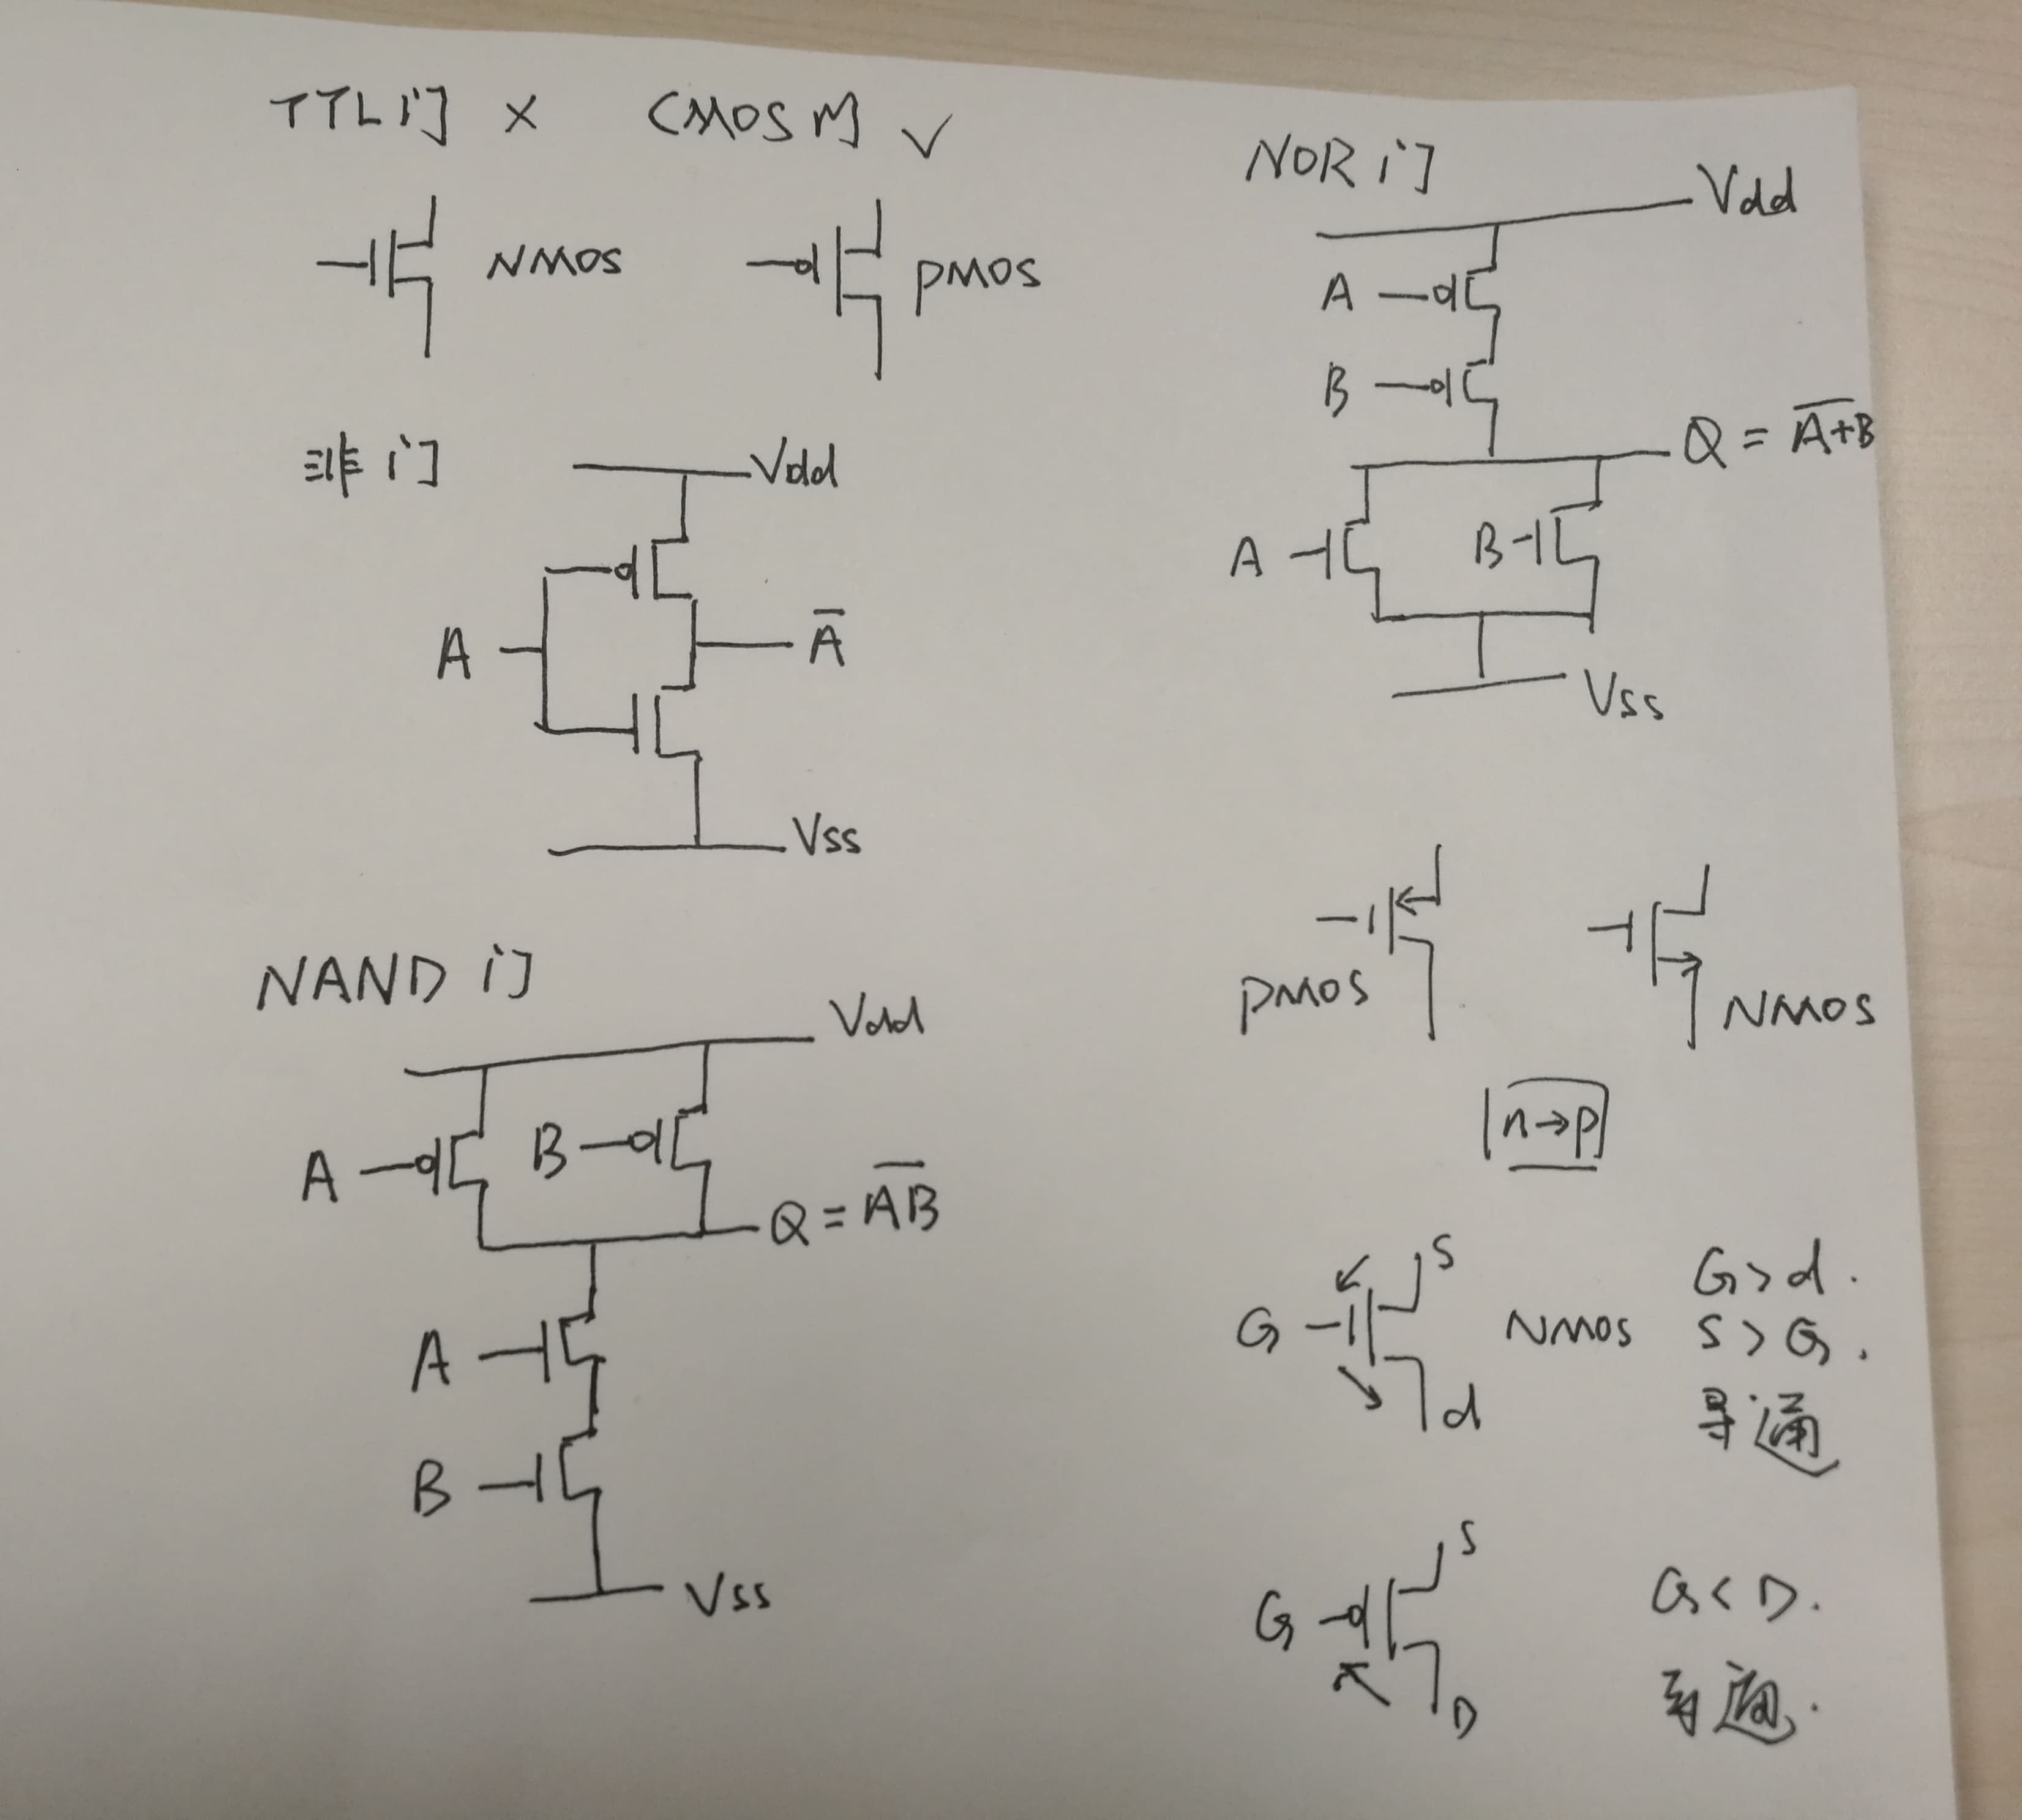 TTL门 × CMOS门 √
NMOS
PMOS
非门
Vdd
A
A̅
Vss
NAND门
Vdd
A
B
Q = A̅B̅
A
B
Vss
NOR门
Vdd
A
B
Q = \overline{A+B}
A
B
Vss
PMOS
NMOS
n→p
S
G
d
NMOS
G > d.
S > G.
导通
S
G
D
G < D.
导通.